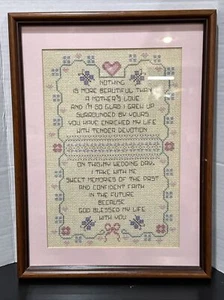 NOTHING
IS MORE BEAUTIFUL THAN
A MOTHER'S LOVE
AND I'M SO GLAD I GREW UP
SURROUNDED BY YOURS
YOU HAVE ENRICHED MY LIFE
WITH TENDER DEVOTION
ON THIS, MY WEDDING DAY,
I TAKE WITH ME
SWEET MEMORIES OF THE PAST
AND CONFIDENT FAITH
IN THE FUTURE
BECAUSE
GOD BLESSED MY LIFE
WITH YOU